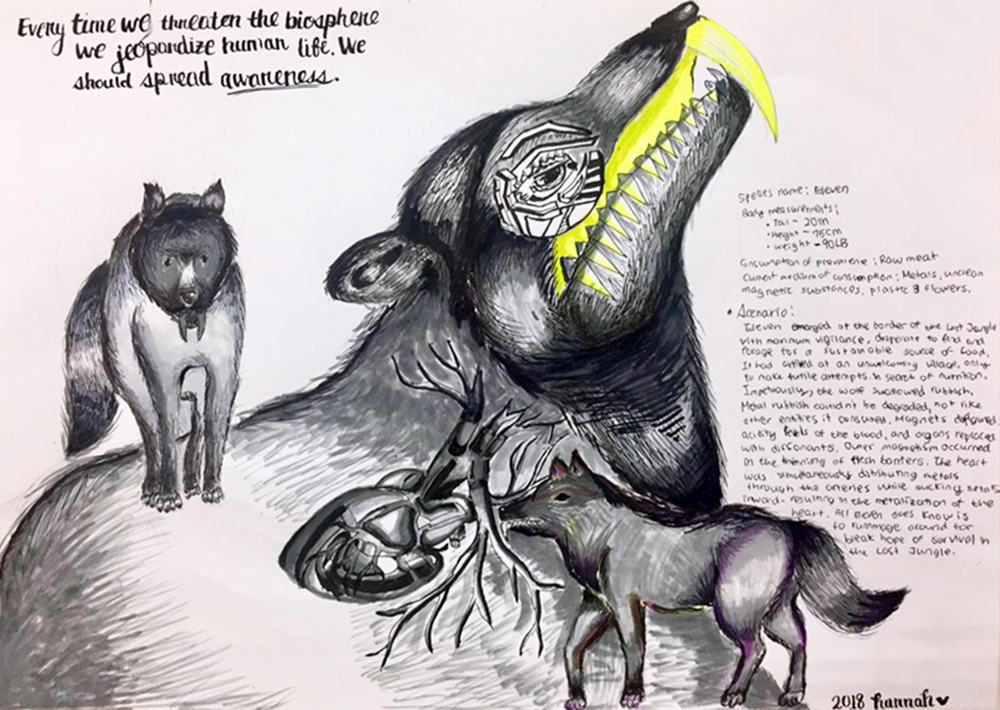 Every time we threaten the biosphere
we jeopardize human life. We
should spread awareness.
Species name: Eleven
Body measurements:
• Tail - 20m
• Height - 75cm
• Weight - 90LB
Consumption of provenience: Raw meat
Current medium of consumption: Metals, unclean
magnetic substances, plastic & flowers.
• Scenario:
Eleven emerged at the border of the Last Jungle
with maximum vigilance, desperate to find and
forage for a sustainable source of food.
It has arrived at an unwelcoming village, only
to make futile attempts in search of nutrition.
Impetuously, the wolf swallowed rubbish.
Metal rubbish couldn't be degraded, not like
other entities it consumed. Magnets deflowed
acidity levels of the blood, and organs replaces
with dissonants. Outer magnetism occurred
in the thinning of flesh borders. The heart
was simultaneously distributing metals
through the arteries while sucking metals
inward- resulting in the metalization of the
heart. All Eleven does know is
to rummage around for
bleak hope of survival in
the Last Jungle.
2018 hannah